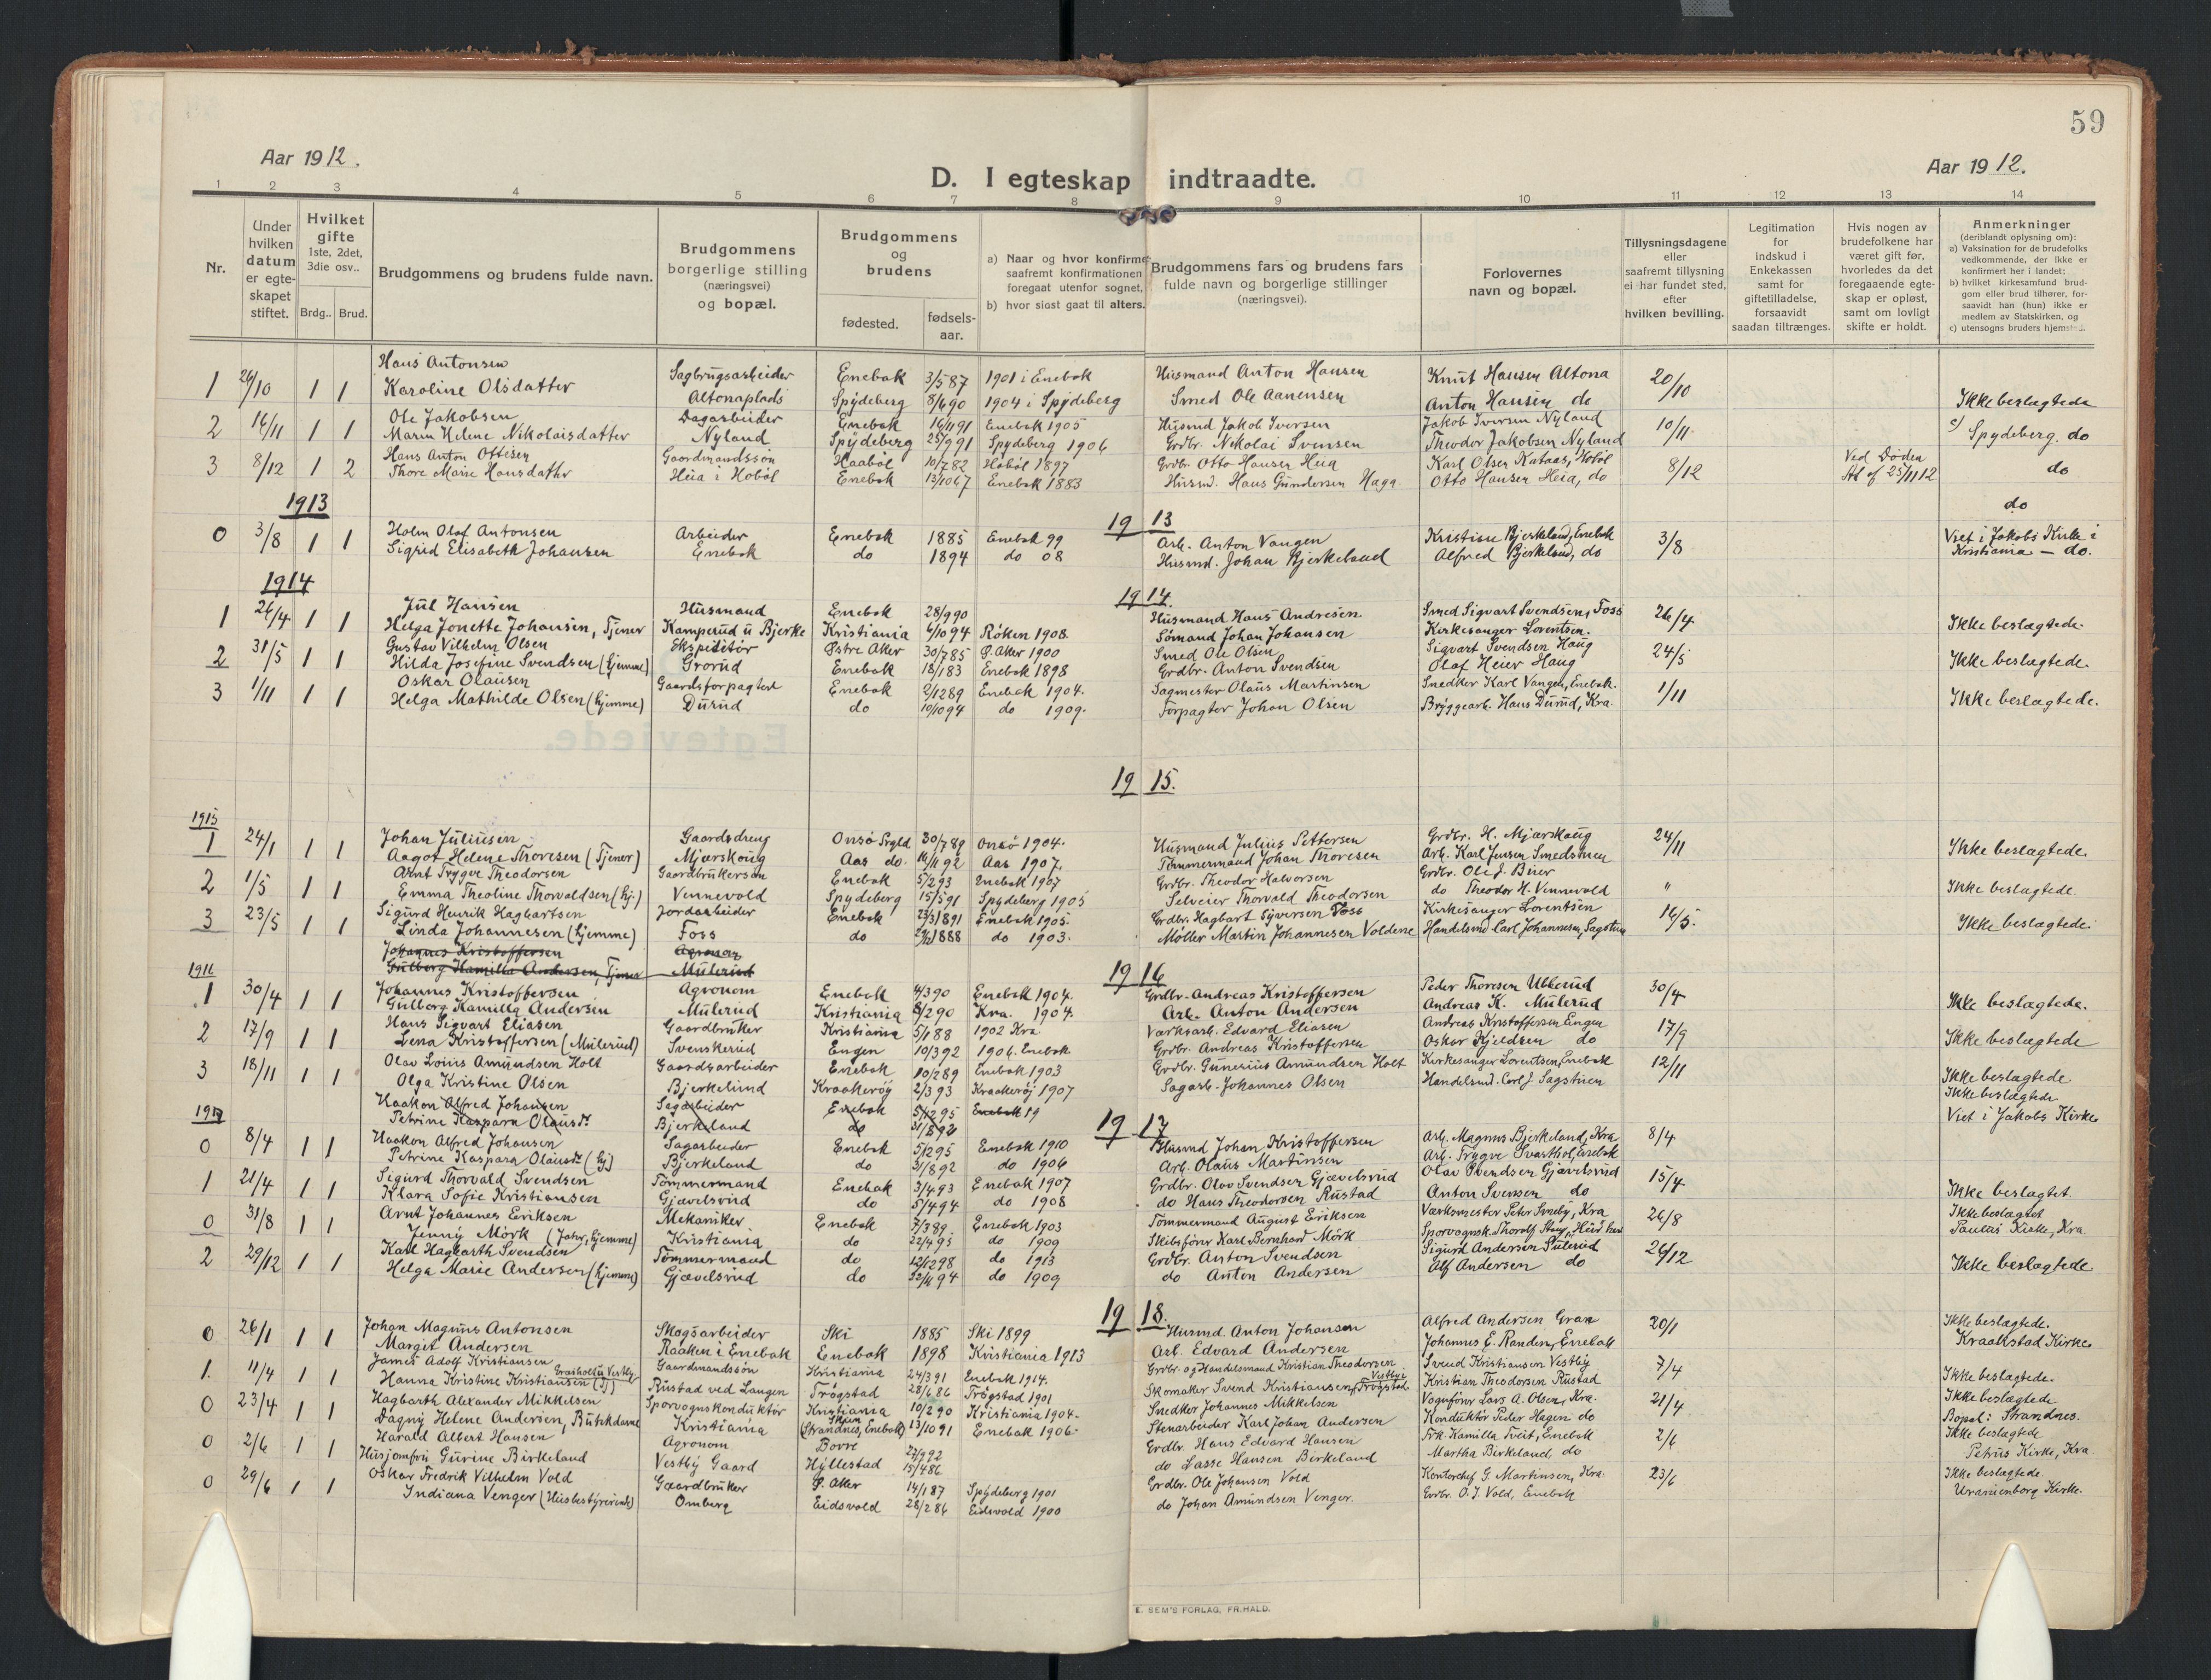 59
Aar 1912.
Aar 1912.
D. I egteskap indtraadte.
1 2 3 4 5 6 7 8 9 10 11 12 13 14
Nr.
Under hvilken datum er egte-skapet stiftet.
Hvilket gifte 1ste, 2det, 3die osv..
Brdg.. Brud.
Brudgommens og brudens fulde navn.
Brudgommens borgerlige stilling (næringsvei) og bopæl.
Brudgommens og brudens
fødested.
fødsels-aar.
a) Naar og hvor konfirme- saafremt konfirmationen foregaat utenfor sognet,
b) hvor sidst gaat til alters.
Brudgommens fars og brudens fars fulde navn og borgerlige stillinger (næringsvei).
Forlovernes navn og bopæl.
Tillysningsdagene eller saafremt tillysning ei har fundet sted, efter hvilken bevilling.
Legitimation for indskud i Enkekassen samt for giftetilladelse, forsaavidt saadan tiltrænges.
Hvis nogen av brudefolkene har været gift før, hvorledes da det foregaaende egte-skap er opløst, samt om lovligt skifte er holdt.
Anmerkninger (deriblandt oplysning om):
a) Vaksination for de brudefolks vedkommende, der ikke er konfirmert her i landet;
b) hvilket kirkesamfund brud-gom eller brud tilhører, for-saavidt han (hun) ikke er medlem av Statskirken, og
c) utensogns bruders hjemsted.
Hans Antonsen Sagbrugsarbeider Enebak 3/5 87 1901 i Enebak Husmand Anton Hansen Knut Hansen Altona
1 26/10 1 1 Karoline Olsdatter Altonaplads Spydeberg 8/6 90 1904 i Spydeberg Smed Ole Aanensen Anton Hansen do 20/10 Ikke beslægtede
Ole Jakobsen Dagarbeider Enebak 16/11 91 Enebak 1905 Husmd Jakob Iversen Jakob Iversen Nyland
2 16/11 1 1 Maren Helene Nikolaisdatter Nyland Spydeberg 25/9 91 Spydeberg 1906 Grdbr. Nikolai Svensen Theodor Jakobsen Nyland 10/11 c) Spydeberg. do
Hans Anton Ottesen Gaardmandssøn Haabøl 10/7 82 Hobøl 1897 Grdbr. Otto Hansen Heia Karl Olsen Kataas, Hobøl
3 8/12 1 2 Thore Marie Hansdattr Heia i Hobøl Enebak 13/10 67 Enebak 1883 Husmd. Hans Gundersen Haga Otto Hansen Heia, do 8/12 Ved Døden Att af 25/11 12 do
1913 19 13 do
Holm Olaf Antonsen Arbeider Enebak 1885 Enebak 99 Arb. Anton Vangen Kristian Bjerkeland, Enebak Viet i Jakobs Kirke i
0 3/8 1 1 Sigrid Elisabeth Johansen Enebak do 1894 do 08 Husmd. Johan Bjerkeland Alfred Bjerkeland, do 3/8 Kristiania – do.
1914 19 14.
Jul Hansen Husmand Enebak 28/9 90 Husmand Hans Andresen Smed Sigvart Svendsen, Foss
1 26/4 1 1 Helga Jonette Johansen, Tjener Kamperud u Bjerke Kristiania 6/10 94 Røken 1908. Sømand Johan Johansen Kirkesanger Lorentsen. 26/4 Ikke beslægtede.
Gustav Vilhelm Olsen Ekspeditør Østre Aker 30/7 85 Ø. Aker 1900 Smed Ole Olsen Sigvart Svendsen Haug
2 31/5 1 1 Hilda Josefine Svendsen (hjemme) Grorud Enebak 18/1 83 Enebak 1898 Grdbr. Anton Svendsen Olaf Heier Haug 24/5 Ikke beslægtede.
Oskar Olausen Gaardsforpagter Enebak 2/12 89 Enebak 1904. Sagmester Olaus Martinsen Snedker Karl Vangen, Enebak.
3 1/11 1 1 Helga Mathilde Olsen (hjemme) Durud do 10/10 94 do 1909. Forpagter Johan Olsen Bryggearb. Hans Durud, Kra. 1/11 Ikke beslægtede.
19 15.
1915
Johan Juliusen Gaardsdreng Onsø Srgld 30/7 89 Onsø 1904. Husmand Julius Pettersen Grdbr. H. Mjærskaug
1 24/1 1 1 Aagot Helene Thoresen (Tjener) Mjærskoug Aas do. 16/11 92 Aas 1907. Tømmermand Johan Thoresen Arb. Karl Jensen Smedstuen 24/11 Ikke beslægtede.
Arnt Trygve Theodorsen Gaardbrukersøn Enebak 5/2 93 Enebak 1907 Grdbr. Theodor Halvorsen Grdbr. Ole J. Buer
2 1/5 1 1 Emma Theoline Thorvaldsen (hj.) Vennevold Spydeberg 15/5 91 Spydeberg 1905 Selveier Thorvald Theodorsen do Theodor H. Vennevold " Ikke beslægtede.
Sigurd Henrik Hagbartsen Jordarbeider Enebak 23/3 1891 Enebak 1905. Grdbr. Hagbart Syversen Foss Kirkesanger Lorentsen
3 23/5 1 1 Linda Johannesen (hjemme) Foss do 1888 do 1903. Møller Martin Johannesen Voldene Handelsmd Carl Johannesen, Sagstuen 16/5. Ikke beslægtede.
Johannes Kristoffersen Agronom
Gulborg Kamilla Andersen, Tjener Mulerud
1916 19 16
Johannes Kristoffersen Agronom Enebak 4/3 90 Enebak 1904. Grdbr. Andreas Kristoffersen Peder Thoresen Ullerud
1 30/4 1 1 Gulborg Kamilla Andersen Mulerud Kristiania 8/2 90 Kra. 1904. Arb. Anton Andersen Andreas K. Mulerud 30/4 Ikke beslægtede.
Hans Sigvart Eliasen Gaardbruker Kristiania 5/1 88 1902 Kra. Værksarb. Edvard Eliasen Andreas Kristoffersen Engen
2 17/9 1 1 Lena Kristoffersen (Mulerud) Svenskerud Engen 10/3 92 1906. Enebak Grdbr. Andreas Kristoffersen Oskar Kjeldsen do 17/9 Ikke beslægtede
Olav Louis Amundsen Holt Gaardsarbeider Enebak 10/2 89 Enebak 1903 Grdbr. Gunerius Amundsen Holt Kirkesanger Lorentsen, Enebak
3 18/11 1 1 Olga Kristine Olsen Bjerkelund Kraakerøy 2/3 93 Kraakerøj 1907 Sagarb. Johannes Olsen Handelsmd. Carl J Sagstuen 12/11 Ikke beslægtede
Haakon Alfred Johansen Sagarbeider Enebak 5/12 95 Enebak 19 Ikke beslægtede.
1917 Petrine Kaspara Olausdr. Bjerkeland do 31/8 92 19 17 Viet i Jakobs Kirke
Haakon Alfred Johansen Sagarbeider Enebak 5/12 95 Enebak 1910 Husmd Johan Kristoffersen Arb. Magnus Bjerkeland, Kra
0 8/4 1 1 Petrine Kaspara Olausdr. (hj) Bjerkeland do 31/8 92 do 1906 Arb. Olaus Martinsen Arb. Trygve Svarthol, Enebak 8/4
Sigurd Thorvald Svendsen Tømmermand Enebak 3/4 93 Enebak 1907 Grdbr. Olav Svendsen Gjævelsrud Olav Svendsen Gjævelsrud
1 21/4 1 1 Klara Sofie Kristiansen Gjævelsrud do 5/4 94 do 1908 do Hans Theodorsen Rustad Anton Svensen do 15/4 Ikke beslægtet.
Arnt Johannes Eriksen Mekaniker Enebak 7/3 89 Enebak 1903 Tømmermand August Eriksen Værksmester Peter Smeby, Kra Ikke beslægtet
0 31/8 1 1 Jenny Mørk (hjemme) Kristiania do 22/4 95 do 1909 Skibsfører Karl Bernhard Mørk 26/8 Paulus Kirke, Kra
Karl Hagbarth Svendsen Tømmermand do 12/12 98 do 1913 Grdbr. Anton Svendsen Sigurd Andersen Sulerud
2 29/12 1 1 Helga Marie Andersen (hjemme) Gjævelsrud do 94 do 1909 do Anton Andersen Alf Andersen do 26/12 Ikke beslægtede
19 18.
Johan Magnus Antonsen Skogsarbeider Ski 1885 Ski 1899 Husmd. Anton Johansen Alfred Andersen Gran Ikke beslægtede.
0 26/1 1 1 Margit Andersen Raaken i Enebak Enebak 1898 Kristiania 1913 Arb. Edvard Andersen Johannes E. Randem, Enebak 20/1 Kraakstad Kirke
James Adolf Kristiansen Gaardmandssøn Kristiania 24/3 91 Enebak 1914. Grdbr. og Handelsmand Kristian Theodorsen Svend Kristiansen Vestby
1. 11/4 1 1 Hanna Kristine Kristiansen (Tj) Rustad ved Langen Trøgstad 28/6 86 Trøgstad 1901 Skomaker Svend Kristiansen, Vestby i Trøgstad Kristian Theodorsen Rustad 7/4 Ikke beslægtede.
Hagbarth Alexander Mikkelsen Sporvognskonduktør Kristiania 10/2 90 Kristiania 1904. Snedker Johannes Mikkelsen Vognfører Lars A. Olsen, Kra. Ikke beslægtede
0 23/4 1 1 Dagny Helene Andersen, Butikdame Kristiania (Strandnes, Enebak) 13/10 91 Enebak 1906. Stenarbeider Karl Johan Andersen Konduktør Peder Hagen do 21/4 Bopæl: Strandnes.
Harald Albert Hansen Agronom Borre 22/9 92 Grdbr. Hans Edvard Hansen Frk. Kamilla Tveit, Enebak Ikke beslægtede
0 2/6 1 1 Husjomfru Gurine Birkeland Vestby Gaard Hyllestad 15/4 86 do Lasse Hansen Birkeland Martha Birkeland, do 2/6 Petrus Kirke, Kra
Oskar Fredrik Vilhelm Vold Gaardbruker Ø. Aker 14/1 87 Spydeberg 1901 Grdbr. Ole Johansen Vold Kontorchef G. Martinsen, Kra. Ikke beslægtede.
0 29/6 1 1 Indiana Venger (Husbestyrerinde) Omberg Eidsvold 28/2 86 Eidsvold 1900 do Johan Amundsen Venger. Grdbr. O. J. Vold, Enebak 23/6 Uranienborg Kirke.
E. SEM'S FORLAG, FR.HALD.